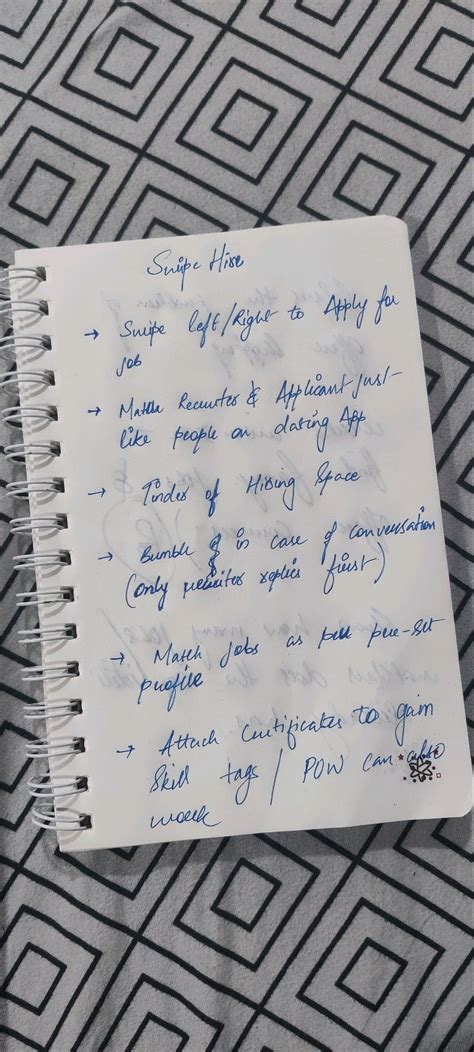 Swipe Hire
→ Swipe left/Right to Apply for
job
→ Match Recruiter & Applicant just
like people on dating App
→ Tinder of Hiring Space
→ Bumble in case of conversation
(only recruiter replies first)
→ Match jobs as per pre-set
profile
→ Attach Certificates to gain
skill tags / POW can also
work